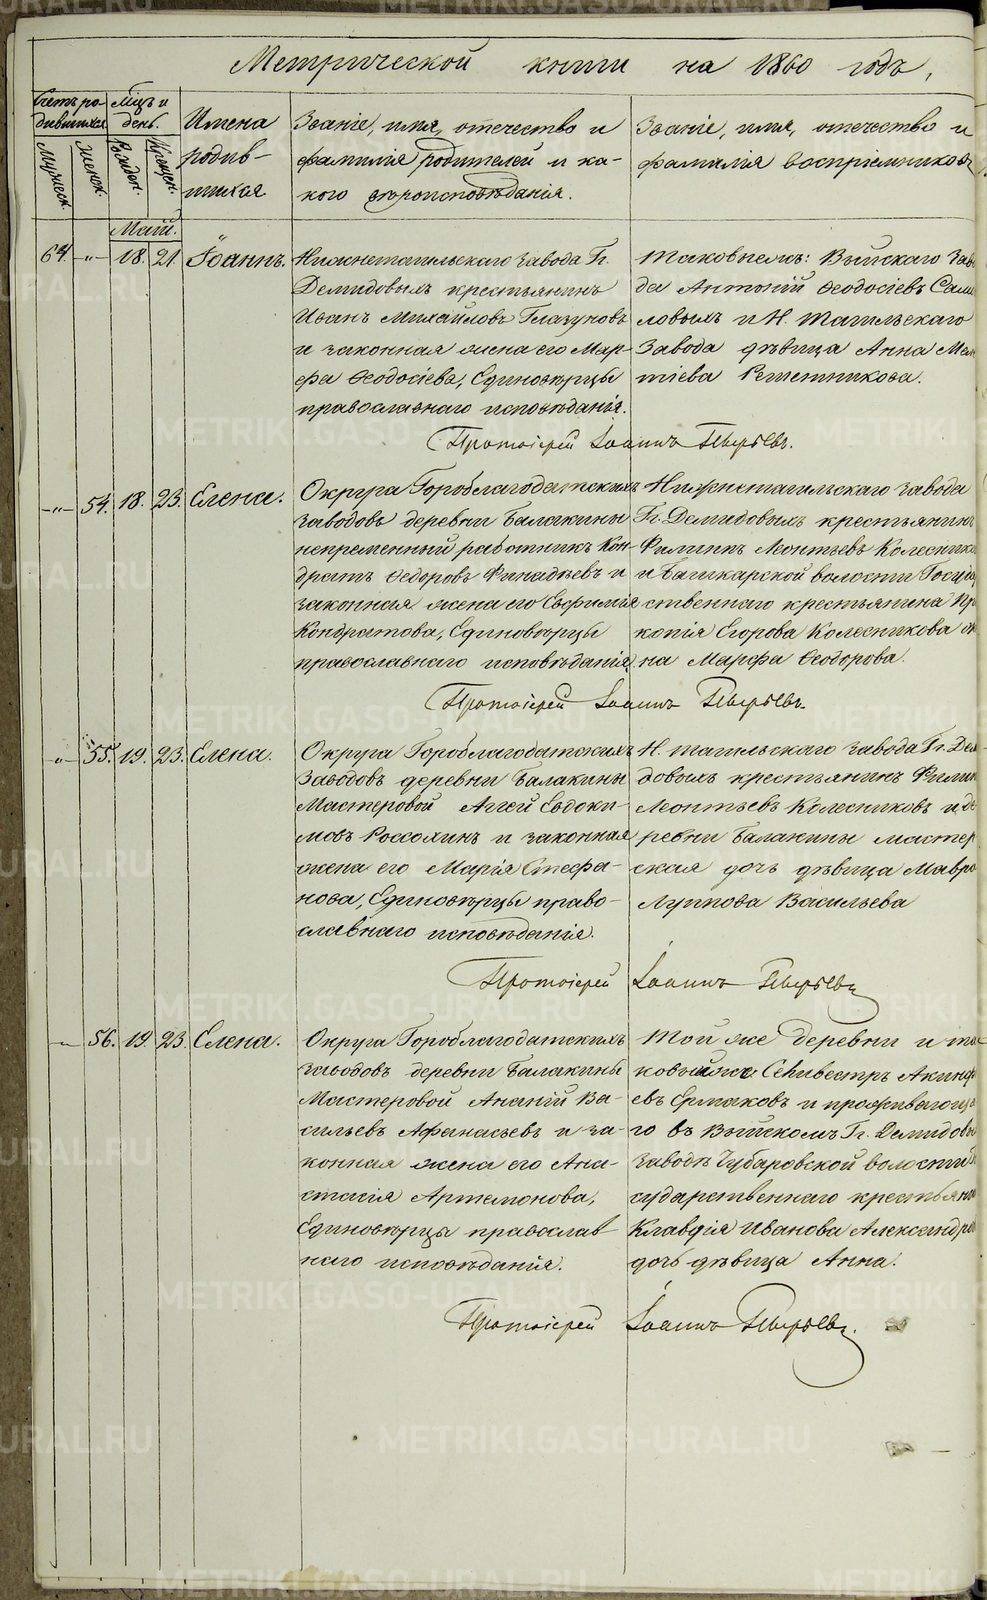 Метрической книги на 1860 годъ,
Счетъ родившихся
Мужеск. женск.
Мѣцъ и день.
Рожден. Крещен.
Имена родившихся
Званіе, имя, отечество и
фамилія родителей и ка-
кого вѣроисповѣданія.
Званіе, имя, отечество и
фамилія воспріемниковъ
Май.
64. -"- 18. 21. Іоаннъ.
Нижнетагильскаго завода Гг.
Демидовыхъ крестьянинъ
Иванъ Михайловъ Глазуновъ
и законная жена его Мар-
фа Ѳеодосіева, Единовѣрцы
православнаго исповѣданія.
Таковыежъ: Выйскаго Заво
да Антоній Ѳеодосіевъ
ловыхъ и Н. Тагильскаго
Завода дѣвица Анна
тіева Решетникова.
Протоіерей Іоаннъ Пырьевъ.
-"- 54. 18. 23. Елена.
Округа Гороблагодатскихъ
заводовъ деревни Балакины
непременный работникъ Кон-
дратъ Ѳедоровъ и
законная жена его Евфимія
Кондратова, Единовѣрцы
православнаго исповѣданія.
Нижнетагильскаго завода
Гг. Демидовыхъ крестьянинъ
Филиппъ Леонтьевъ Колеснико
и Башкарской волости Госуда
ственнаго крестьянина Пр
копія Егорова Колесникова
на Марфа Ѳеодорова.
Протоіерей Іоаннъ Пырьевъ.
-"- 55. 19. 23. Елена.
Округа Гороблагодатскихъ
Заводовъ деревни Балакины
Мастеровой Аггей Евдоки-
мовъ Россохинъ и законная
жена его Марія Стефа-
нова, Единовѣрцы право-
славнаго исповѣданія.
Н. Тагильскаго завода Гг. Дем-
довыхъ крестьянинъ Филип
Леонтьевъ Колесниковъ и де
ревни Балакины мастер
ская дочь дѣвица Мавра
Луппова Васильева
Протоіерей Іоаннъ Пырьевъ
-"- 56. 19. 23. Елена.
Округа Гороблагодатскихъ
заводовъ деревни Балакины
Мастеровой Ананій Ва-
сильевъ Афанасьевъ и за-
конная жена его Ана-
стасія Артемонова,
Единовѣрцы православ-
наго исповѣданія.
Той же деревни и та-
ковыйже Селивестръ Акинф
евъ Ермаковъ и проживающа
го въ Выйскомъ Гг. Демидовы
заводѣ Чубаровской волости
сударственнаго крестьяни
Клавдія Иванова Александро
дочь дѣвица Анна.
Протоіерей Іоаннъ Пырьевъ.
METRIKI.GASO-URAL.RU